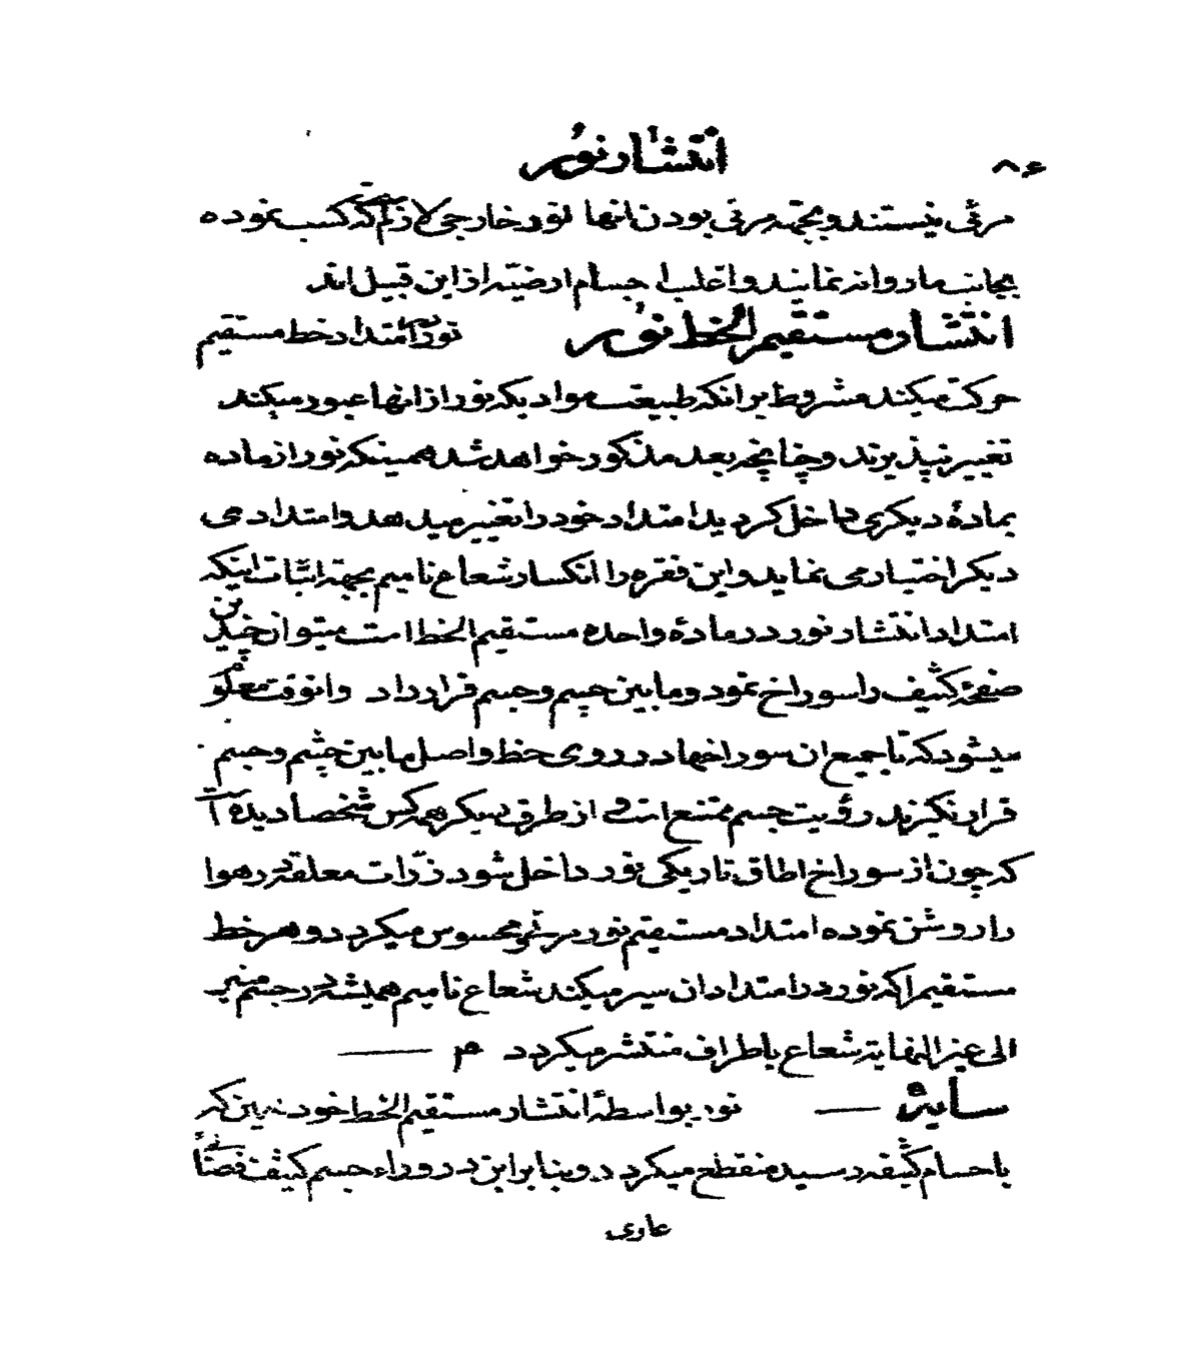 ۸۶
انتشار نور
مرئی نیستند و بجهته مرئی بودن انها نور خارجی لازم است که کسب نموده
بجانب ما روانه نمایند و اغلب اجسام ارضیّه از این قبیل اند
انتشار مستقیم الخط نور نور در امتداد خط مستقیم
حرکت میکند مشروط بر انکه طبیعت موادیکه نور از انها عبور میکند
تغییر نپذیرند و چنانچه بعد مذکور خواهد شد همینکه نور از ماده
بمادهٔ دیکری داخل کردید امتداد خود را تغییر میدهد و امتداد
دیکر اختیار می نماید و این فقره را انکسار شعاع نامیم بجهته اثبات اینکه
امتداد انتشار نور در مادهٔ واحده مستقیم الخط است میتوان چندین
صفحهٔ کثیف را سوراخ نمود و مابین چشم و جسم قرار داد وانوقت معلوم
میشود که تا جمیع ان سوراخها در روی خط واصل مابین چشم و جسم
قرار نکیرند رؤیت جسم ممتنع است و از طرف دیکر همه کس شخصا دیده است
که چون از سوراخ اطاق تاریکی نور داخل شود ذرّات معلقه در هوا
را روشن نموده امتداد مستقیم نور مرئی و محسوس میکردد و هر خط
مستقیم را که نور در امتداد ان سیر میکند شعاع نامیم همیشه در جسم منیر
الی غیر النهایة شعاع باطراف منتشر میکردد م
سایه — نور بواسطهٔ انتشار مستقیم الخط خود همین که
باجسام کثیفه رسید منقطع میکردد و بنا بر این در وراء جسم کثیف فضائی
عاری